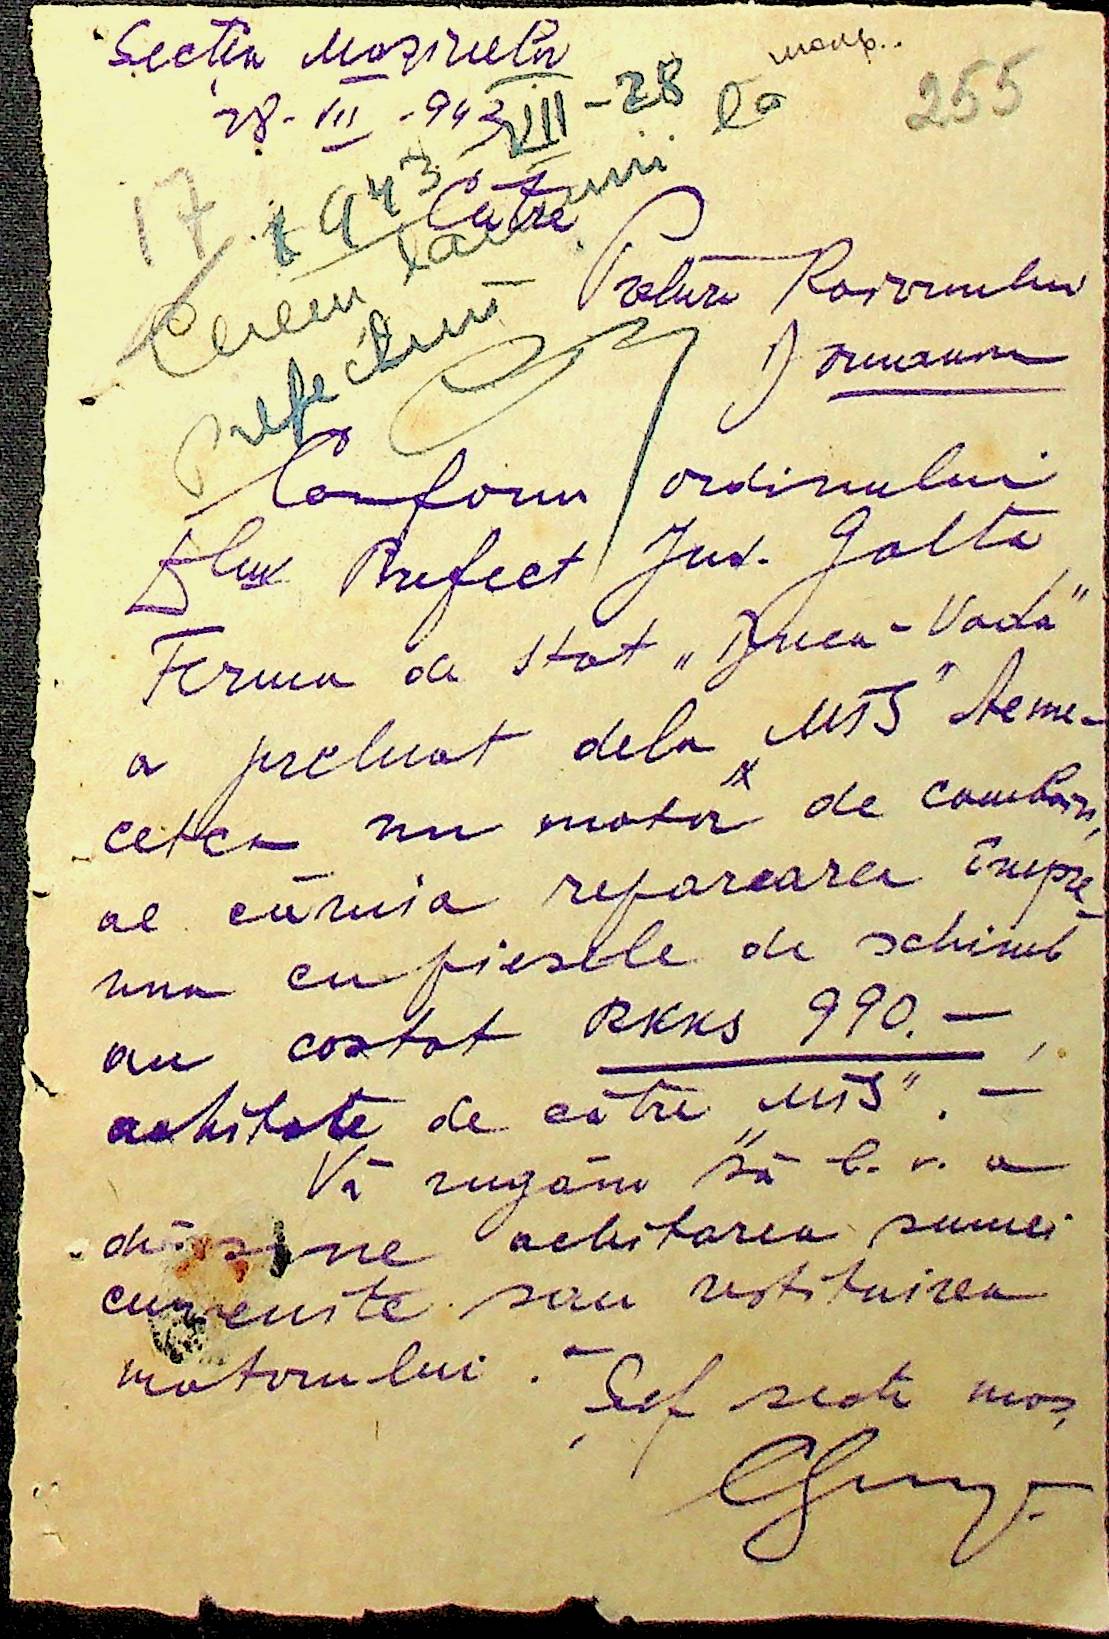 Secția Mașinelor
28-VII-943
255
17
1943 VII-28
Cerem lămuriri la
Prefectură
Către
Pretura Raionului
Domanevca
Conform ordinului
Dlui Prefect Jud. Golta
Ferma de stat „Buca-Vodă"
a preluat dela „MTS"
cetca un motor de combain,
al căruia reparearea împre-
una cu piesele de schimb
au costat RKKS 990.—,
achitate de către „MTS".—
Vă rugăm să b. v. a
dispune achitarea sumei
cuvenite sau restituirea
motorului.—
Șef secti maș,